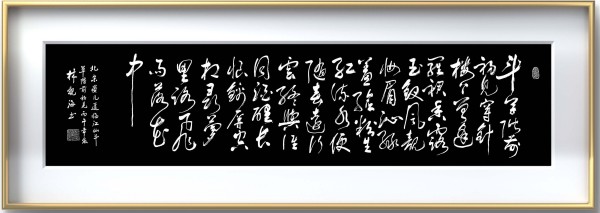 斗草阶前
初见穿针
楼上曾逢
罗裙香露
玉钗风靓
妆眉沁绿
羞脸粉生
红流水便
随春远行
云终与谁
同酒醒长
恨锦屏空
相寻梦
里路飞
雨落花
中
北宋晏几道临江仙斗
草阶前初见丙申
林海书